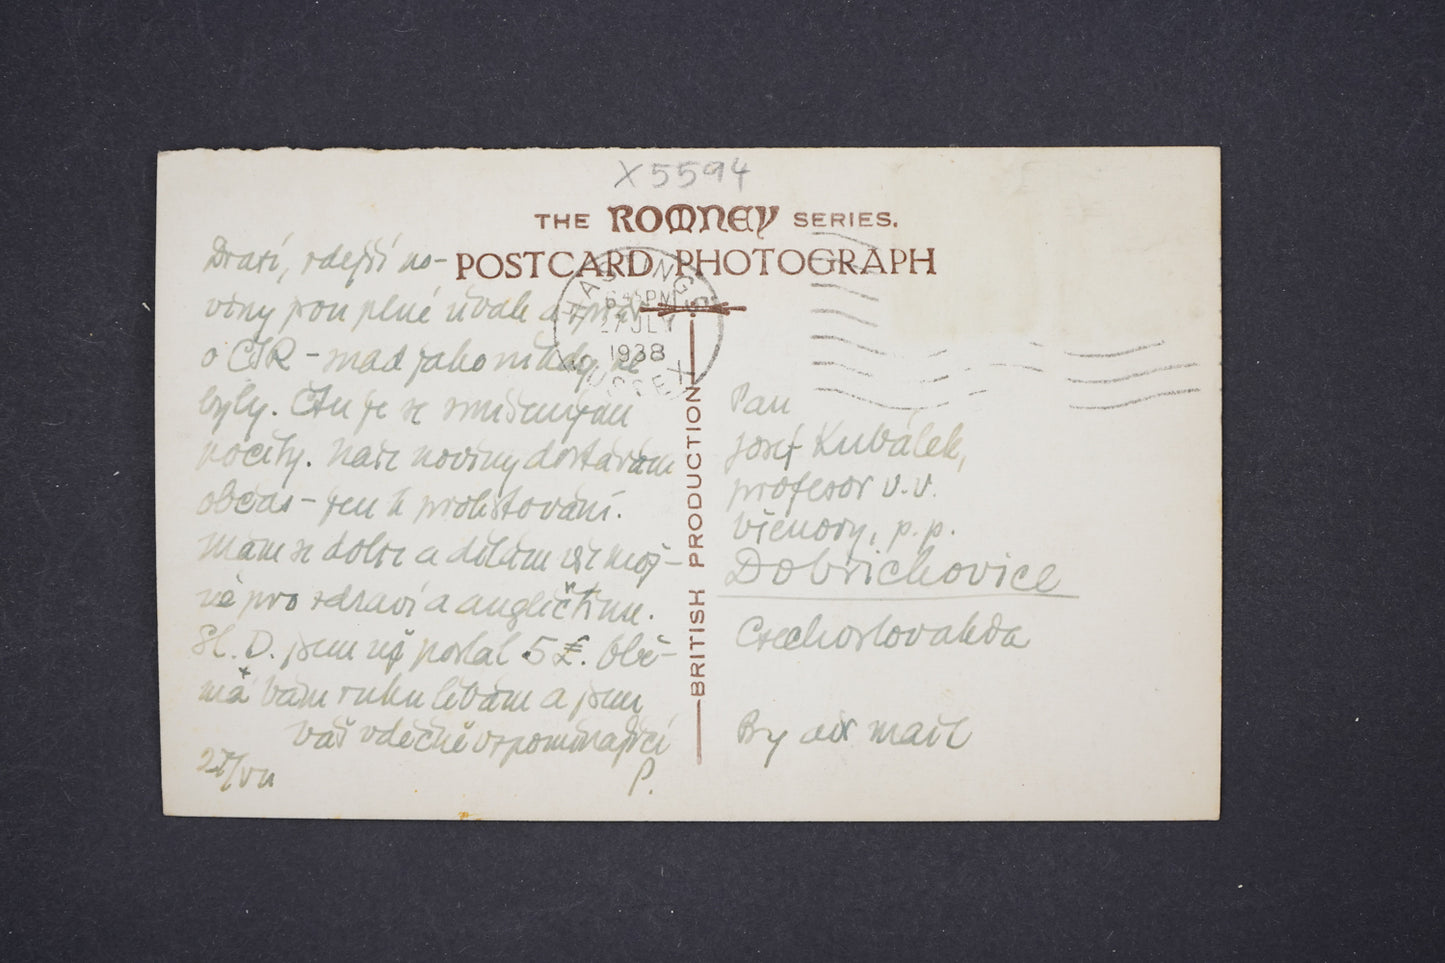 X5594
THE ROMNEY SERIES.
POSTCARD PHOTOGRAPH
HASTINGS
6 45 PM
27 JLY
1938
SUSSEX
BRITISH PRODUCTION
Drazí, zdejší no-
viny jsou plné úvah a zpráv
o ČSR – snad jako nikdy ne
byly. Čtu je se smíšenými
pocity. Naše noviny dostávám
občas – jen k prolistování.
Mám se dobře a dělám vše mož-
né pro zdraví a angličtinu.
Sl. D. jsem už poslal 5 £. Obě-
ma vám ruku líbám a jsem
váš vděčně vzpomínající
P.
27/VII
Pan
Josef Kubálek,
profesor v.v.
Všenory, p.p.
Dobřichovice
Czechoslovakia
By air mail